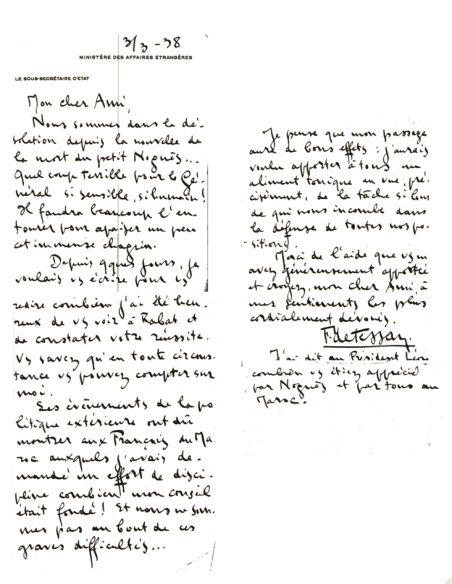 3/3 - 38
MINISTÈRE DES AFFAIRES ETRANGÈRES
LE SOUS-SECRÉTAIRE D'ETAT
Mon cher Ami,
Nous sommes dans la dé-
solation depuis la nouvelle de
la mort du petit Noguès...
Quel coup terrible pour le Gé-
néral si sensible, si humain!
Il faudra beaucoup l'en-
tourer pour apaiser un peu
cet immense chagrin.
Depuis qques jours, je
voulais vs écrire pour vs
redire combien j'ai été heu-
reux de vs voir à Rabat et
de constater votre réussite.
Vs savez qu'en toute circons-
tance vs pouvez compter sur
moi.
Les évènements de la po-
litique extérieure ont dû
montrer aux Français du Ma-
roc auxquels j'avais de-
mandé un effort de disci-
pline combien mon conseil
était fondé! Et nous ne som-
mes pas au bout de ces
graves difficultés...
Je pense que mon passage
aura de bons effets : j'aurais
voulu apporter à tous un
aliment tonique en vue, pré-
cisément, de la tâche si
qui nous incombe dans
la défense de toutes nos po-
sitions.
Merci de l'aide que vs m'
avez généreusement apportée
et croyez, mon cher Ami, à
mes sentiments les plus
cordialement dévoués.
F. de Tessan.
J'ai dit au Président
combien vs étiez apprécié
par Noguès et par tous au
Maroc.